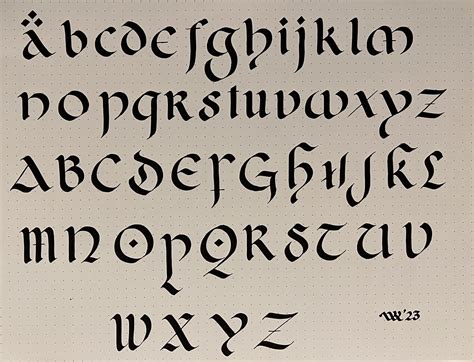 äbcdefghijklm
nopqrstuvwxyz
ABCDEFGHIJKL
MNOPQRSTUV
WXYZ '23